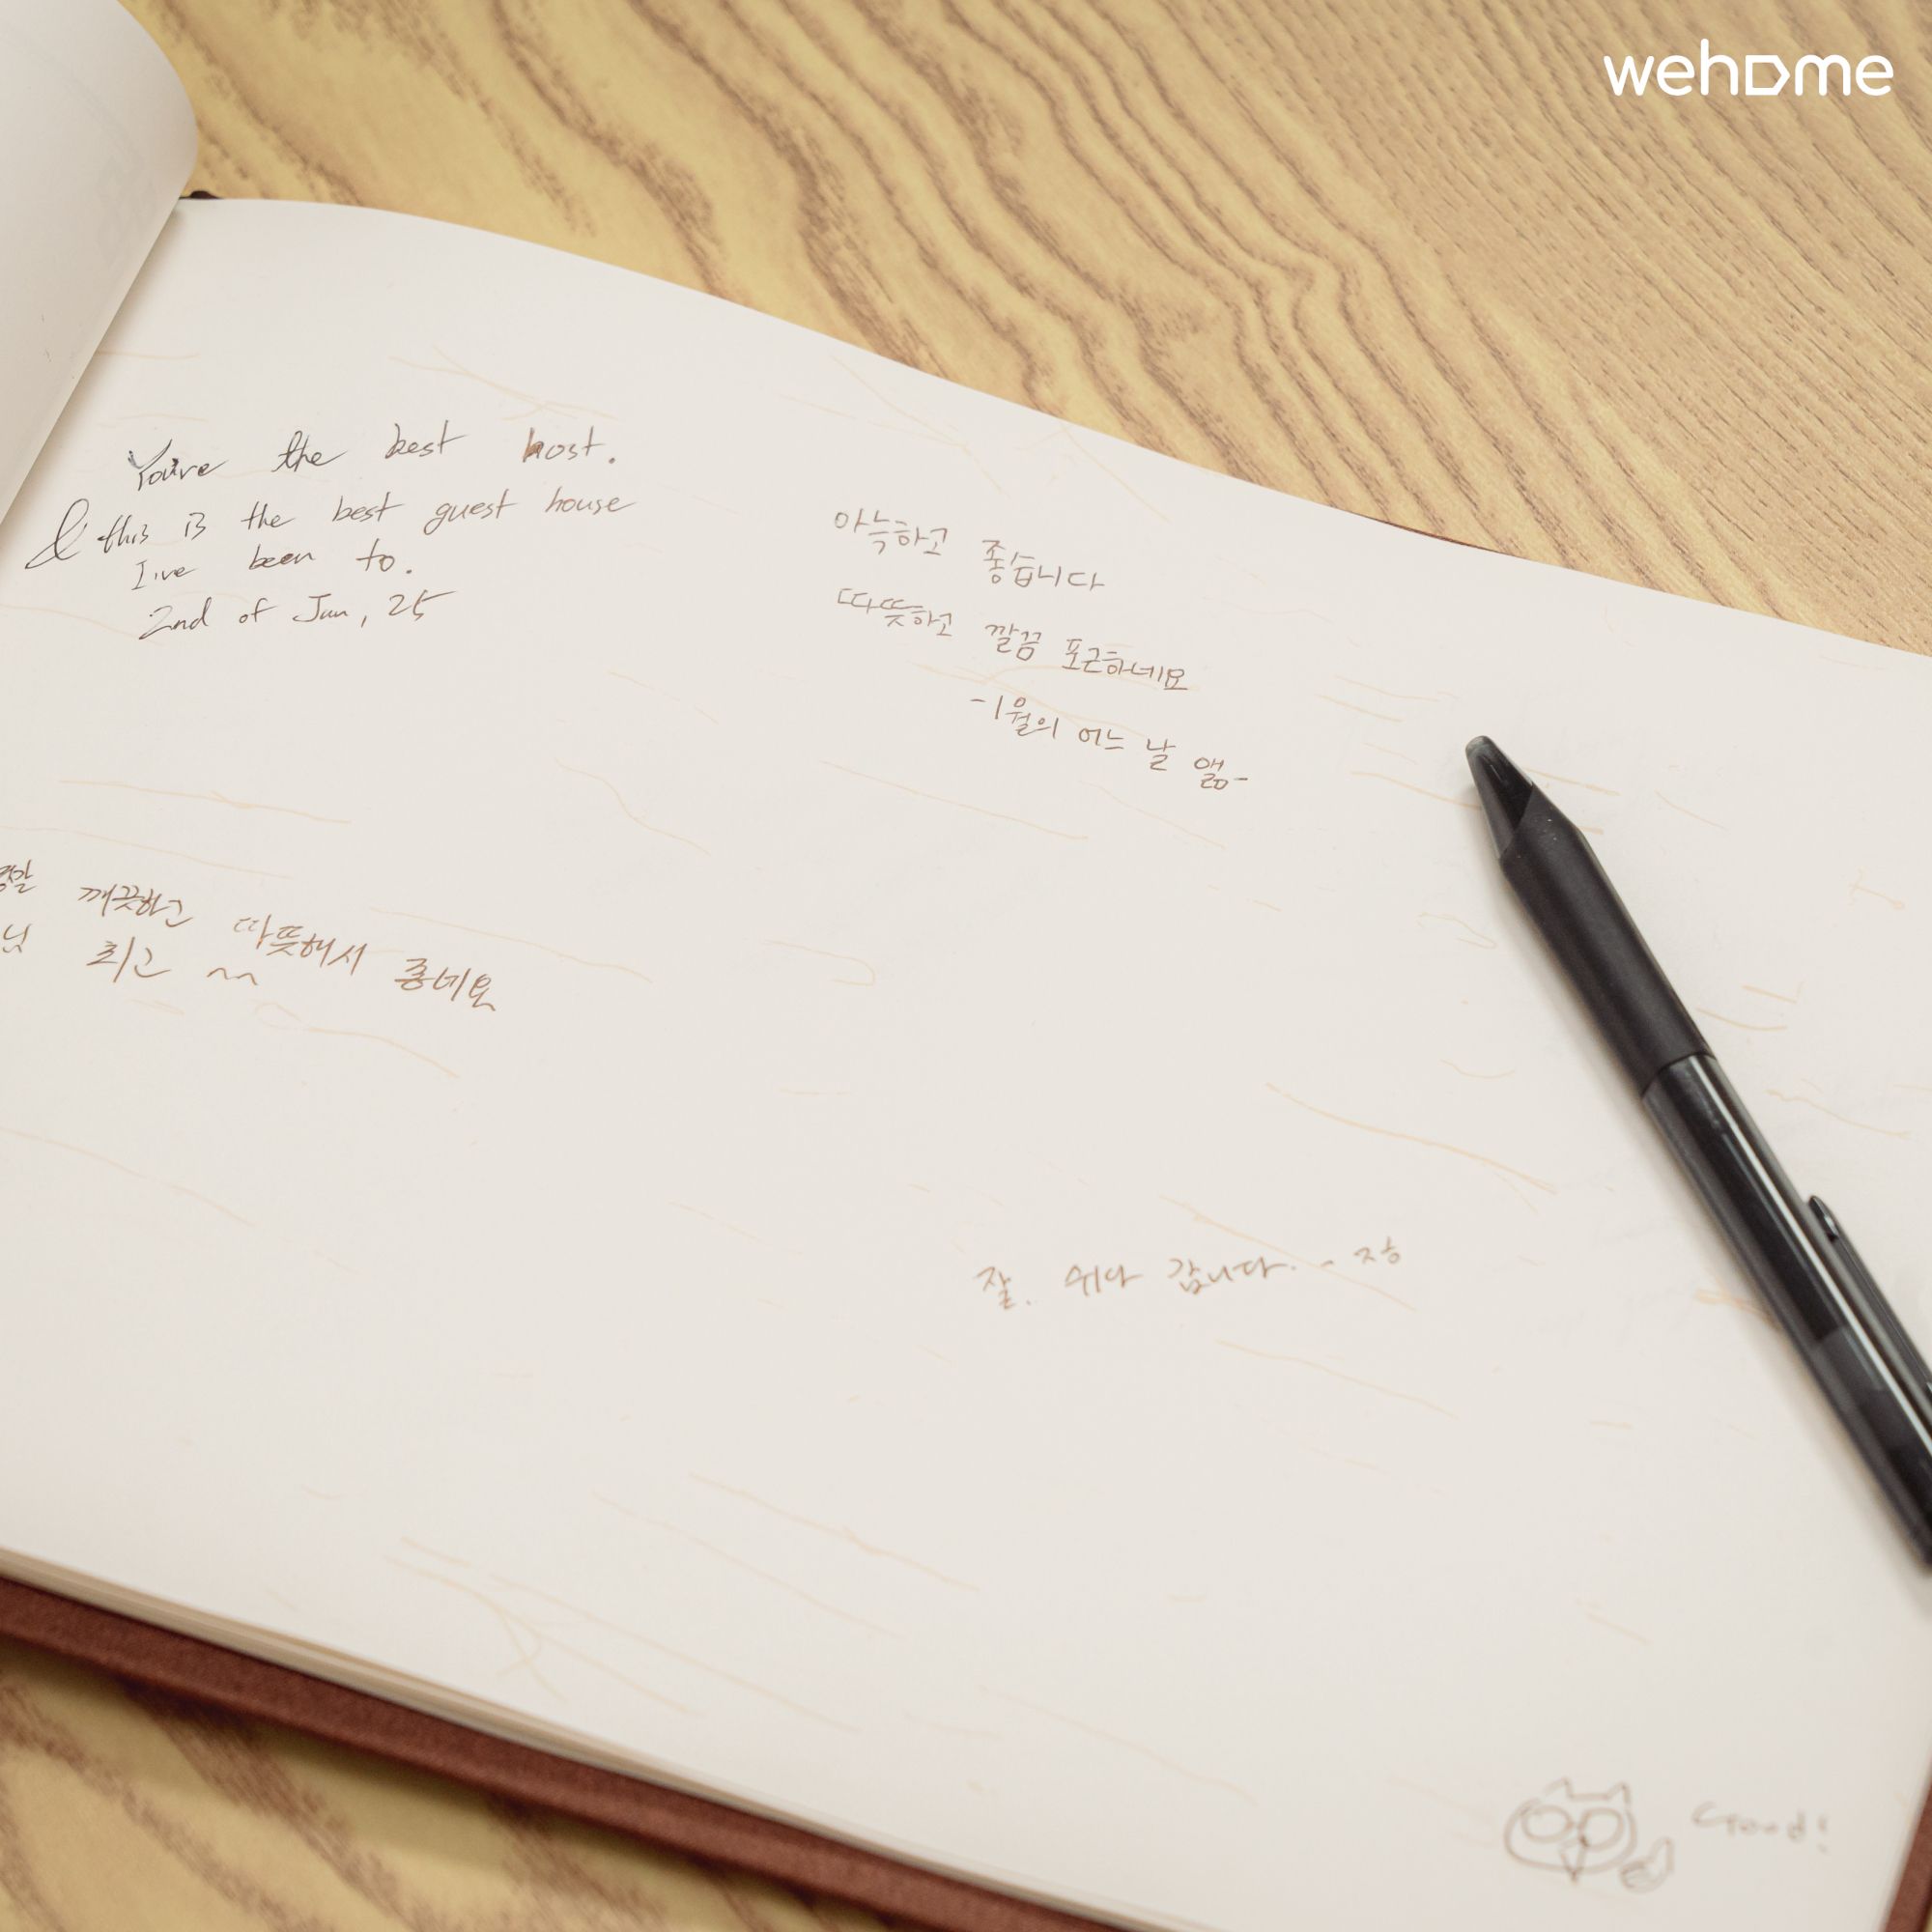 wehome
You're the best host.
& this is the best guest house
I've been to.
2nd of Jan, 25
아늑하고 좋습니다
따뜻하고 깔끔 포근하네요
-1월의 어느 날 앪-
정말 깨끗하고 따뜻해서 좋네요
최고 ^^
잘. 쉬다 갑니다.
Good!